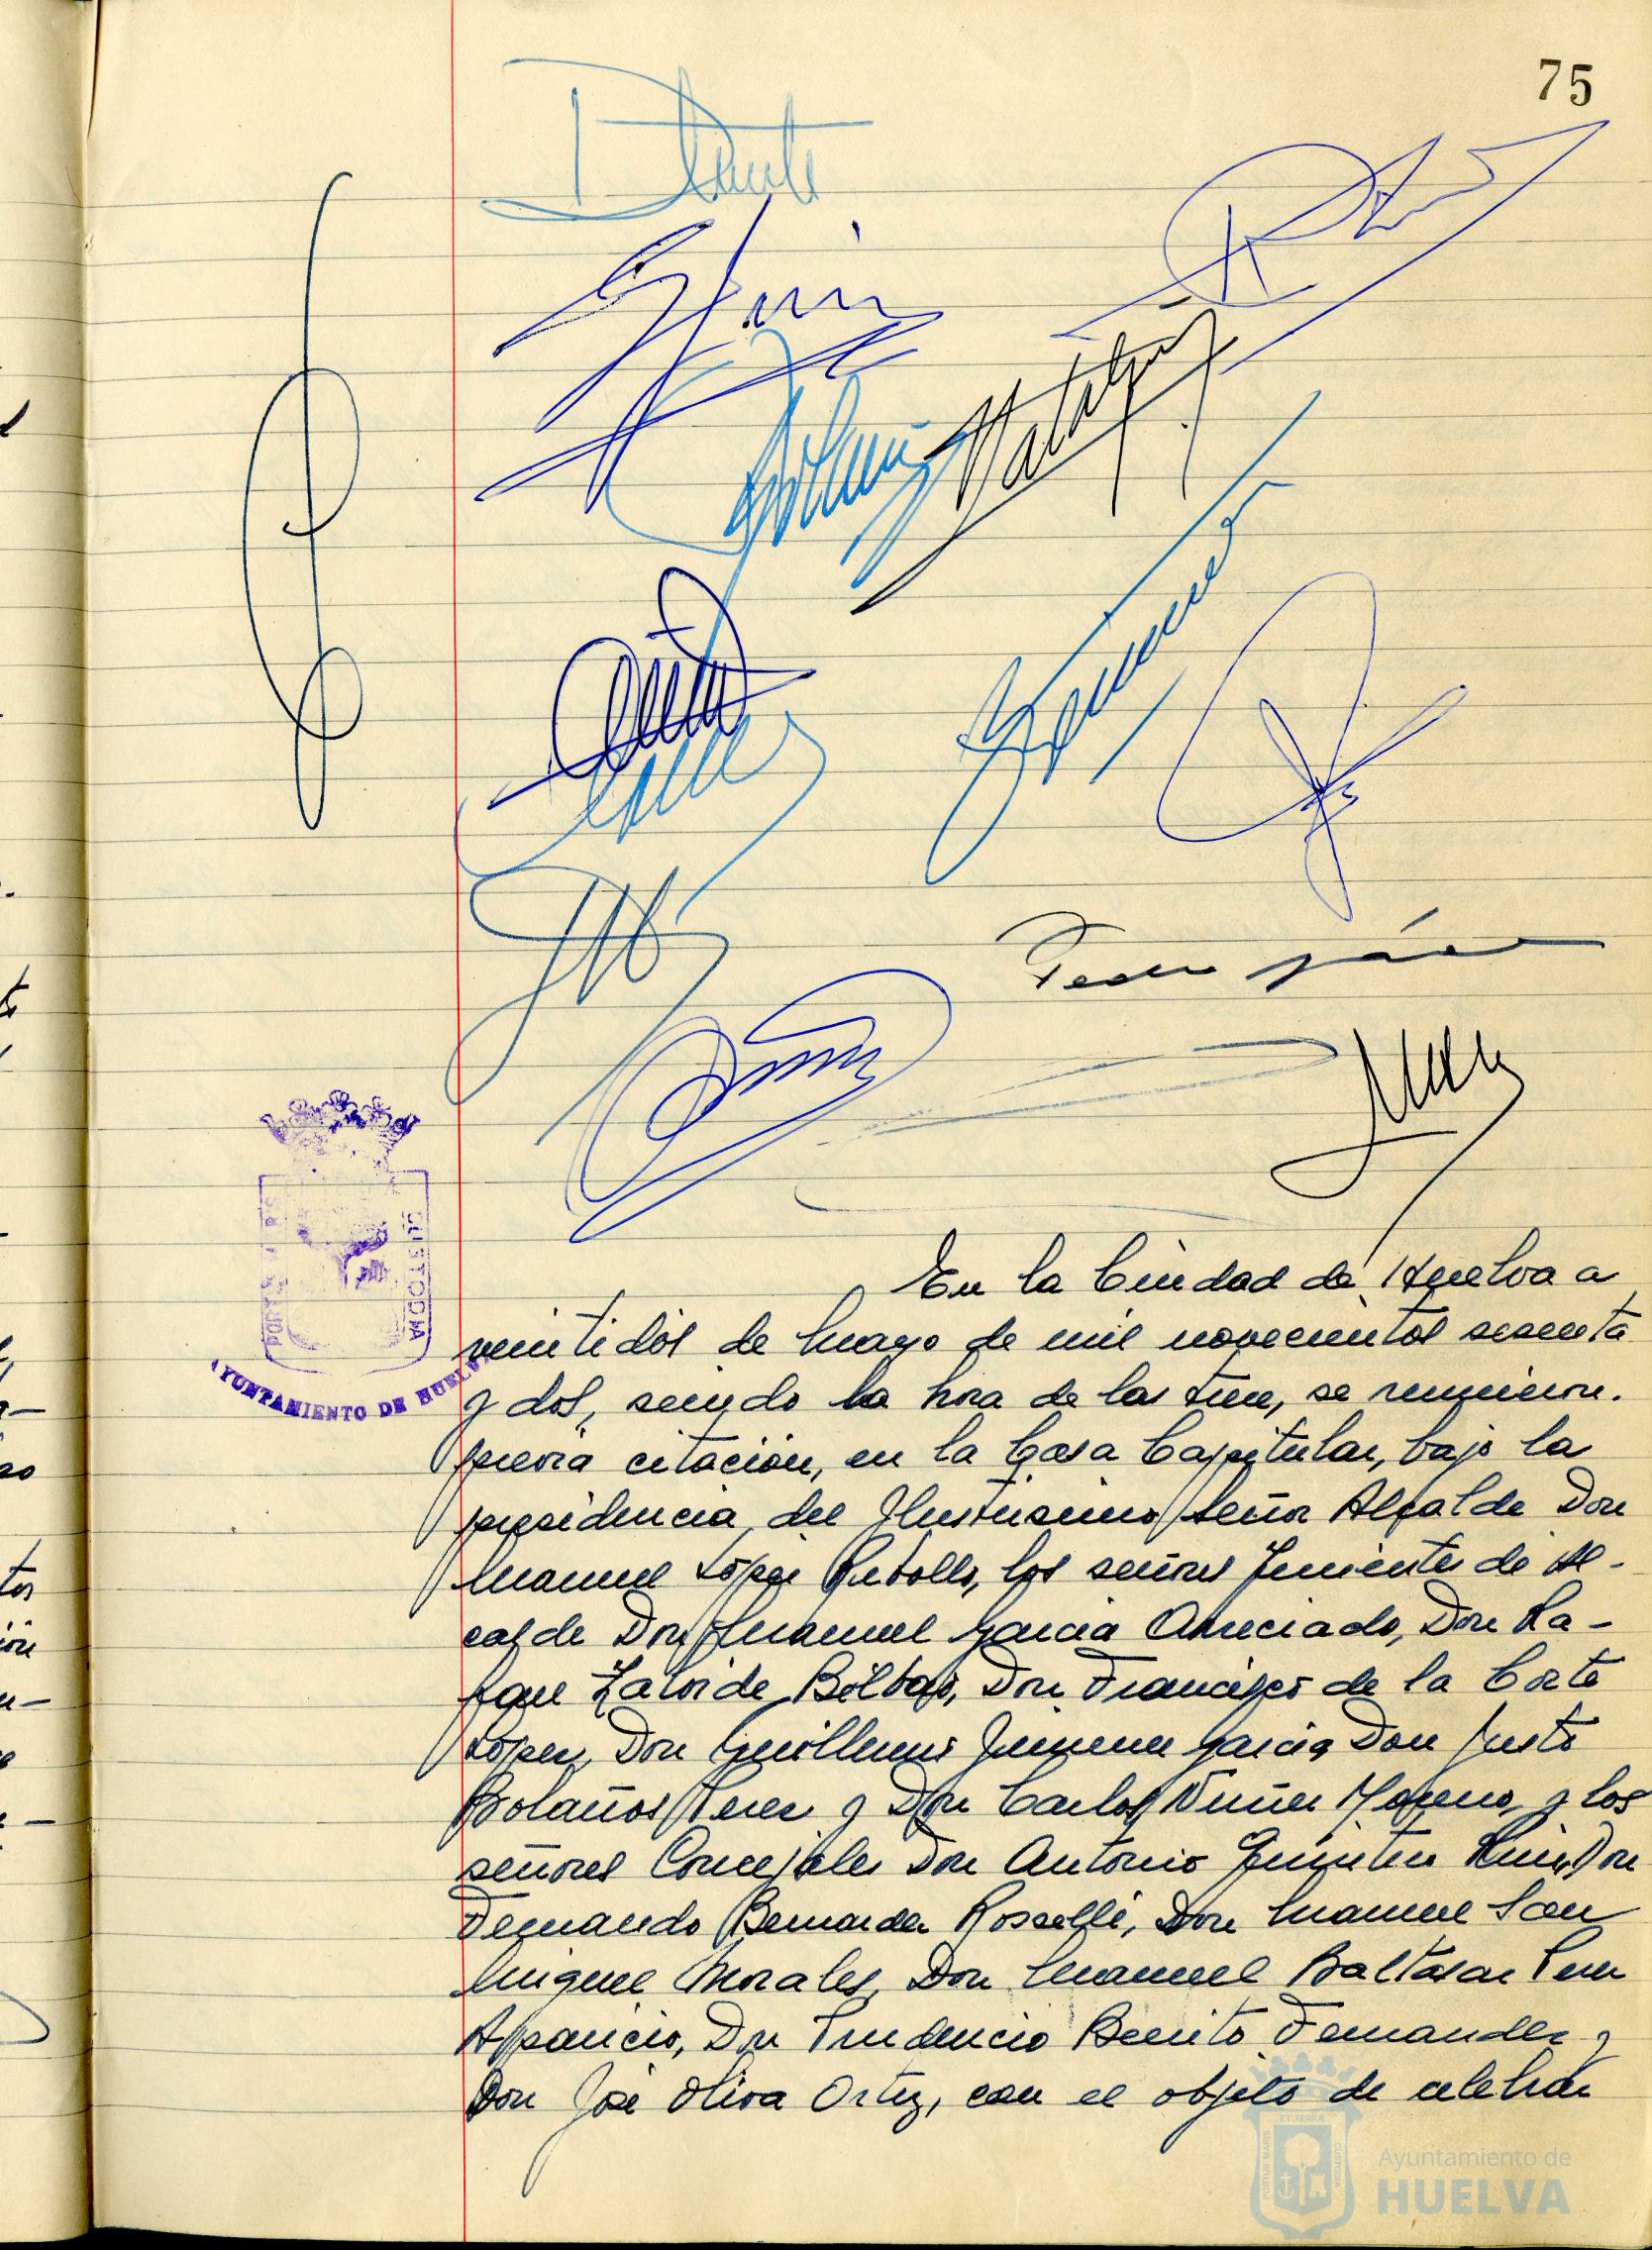 75
Pedro
PORTUS MARIS
CUSTODIA
AYUNTAMIENTO DE HUELVA
En la Ciudad de Huelva a
veintidós de Mayo de mil novecientos sesenta
y dos, siendo la hora de las trece, se reunieron.
previa citación, en la Casa Capitular, bajo la
presidencia, del Ilustrisimo Señor Alcalde Don
Manuel López Rebollo, los señores Tenientes de Al-
calde Don Manuel Garcia Apreciado, Don Ra-
fael Zalvide Bilbao, Don Francisco de la Corte
López, Don Guillermo Jimenez Garcia, Don Justo
Bolaños Perez y Don Carlos Nuñez Moreno, y los
señores Concejales Don Antonio Ruiz, Don
Fernando Bernardez Rosselli, Don Manuel San
Miguel Morales, Don Manuel Baltasar Perez
Aparicio, Don Prudencio Benito Fernandez y
Don José Oliva Ortiz, con el objeto de celebrar
Ayuntamiento de
HUELVA